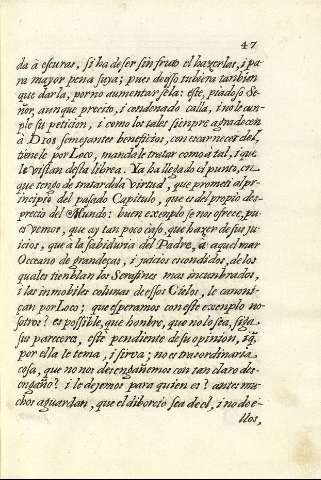 47
da à escuras, si ha de ser sin fruto el hazerlas, i pa-
ra mayor pena suya; pues de esso tubiera tanbien
que darla, por no aumentarsela: este, piadoso Se-
ñor, aunque precito, i condenado calla, i no le cun-
ple su peticion, i como los tales sienpre agradecen
à Dios semejantes beneficios, con escarnecer del,
tienele por Loco, mandale tratar como à tal, i que
le vistan desta librea. Ya ha llegado el punto, en
que tengo de tratar de la Virtud, que prometi al prin-
cipio del pasado Capitulo, que es del propio des-
precio del Mundo: buen exenplo se nos ofrece, pu-
es vemos, que ay tan poco caso, que hazer de sus ju-
icios, que à la sabiduria del Padre, à aquel mar
Occeano de grandeças, i juicios escondidos, de los
quales tienblan los Serafines mas incunbrados,
i las inmobiles colunas de essos Cielos, le canoni-
çan por Loco; que esperamos con este exenplo no-
sotros? es possible, que honbre, que no lo sea, siga
su parecer, este pendiente de su opinion, i q̃
por ella te tema, i sirva; no es traordinaria
cosa, que no nos desengañemos con tan claro des-
engaño? i le dejemos para quien es? antes mu-
chos aguardan, que el diborcio sea del, i no de e-
llos,